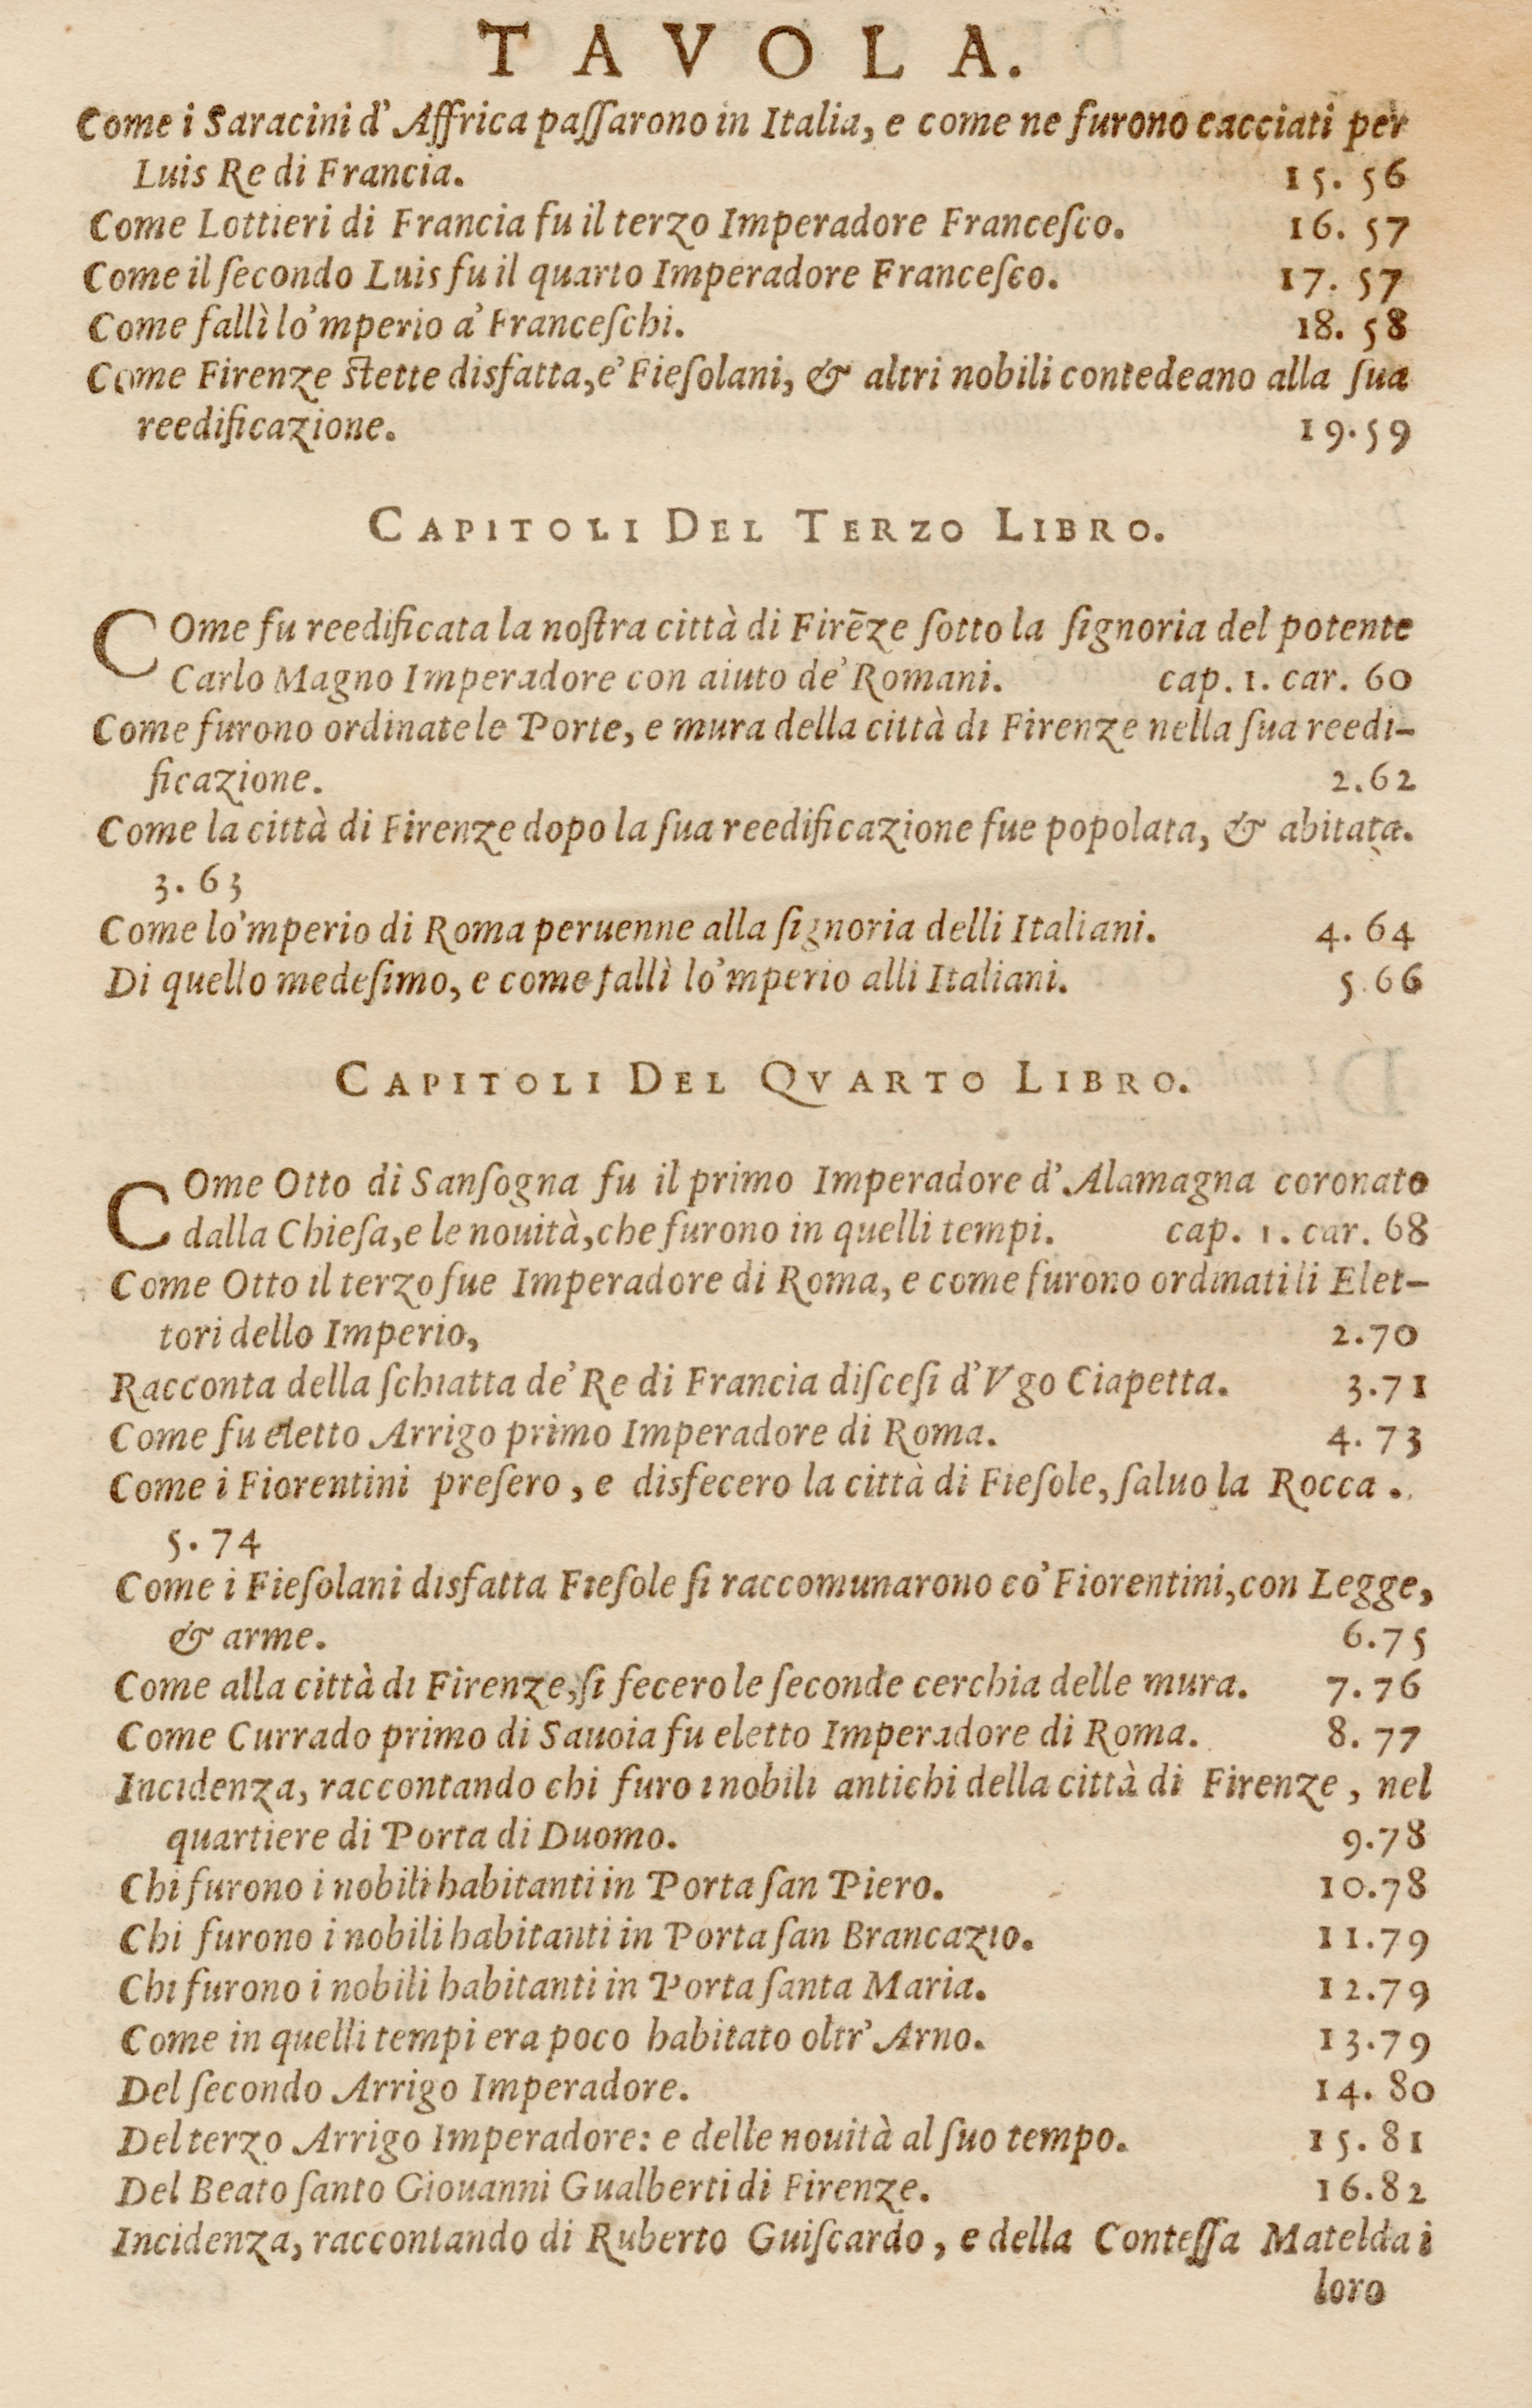 TAVOLA.
Come i Saracini d'Affrica paſſarono in Italia, e come ne furono cacciati per
Luis Re di Francia. 15. 56
Come Lottieri di Francia fu il terzo Imperadore Franceſco. 16. 57
Come il ſecondo Luis fu il quarto Imperadore Franceſco. 17. 57
Come fallì lo'mperio a' Franceſchi. 18. 58
Come Firenze ſtette disfatta, e' Fieſolani, & altri nobili contedeano alla ſua
reedificazione. 19. 59
CAPITOLI DEL TERZO LIBRO.
COme fu reedificata la noſtra città di Firēze ſotto la ſignoria del potente
Carlo Magno Imperadore con aiuto de' Romani. cap. 1. car. 60
Come furono ordinate le Porte, e mura della città di Firenze nella ſua reedi-
ficazione. 2. 62
Come la città di Firenze dopo la ſua reedificazione fue popolata, & abitata.
3. 63
Come lo'mperio di Roma peruenne alla ſignoria delli Italiani. 4. 64
Di quello medeſimo, e come fallì lo'mperio alli Italiani. 5. 66
CAPITOLI DEL QVARTO LIBRO.
COme Otto di Sanſogna fu il primo Imperadore d'Alamagna coronato
dalla Chieſa, e le nouità, che furono in quelli tempi. cap. 1. car. 68
Come Otto il terzo fue Imperadore di Roma, e come furono ordinati li Elet-
tori dello Imperio, 2. 70
Racconta della ſchiatta de' Re di Francia diſceſi d'Vgo Ciapetta. 3. 71
Come fu eletto Arrigo primo Imperadore di Roma. 4. 73
Come i Fiorentini preſero, e disfecero la città di Fieſole, ſaluo la Rocca.
5. 74
Come i Fieſolani disfatta Fieſole ſi raccomunarono co' Fiorentini, con Legge,
& arme. 6. 75
Come alla città di Firenze, ſi fecero le ſeconde cerchia delle mura. 7. 76
Come Currado primo di Sauoia fu eletto Imperadore di Roma. 8. 77
Incidenza, raccontando chi furo i nobili antichi della città di Firenze, nel
quartiere di Porta di Duomo. 9. 78
Chi furono i nobili habitanti in Porta ſan Piero. 10. 78
Chi furono i nobili habitanti in Porta ſan Brancazio. 11. 79
Chi furono i nobili habitanti in Porta ſanta Maria. 12. 79
Come in quelli tempi era poco habitato oltr'Arno. 13. 79
Del ſecondo Arrigo Imperadore. 14. 80
Del terzo Arrigo Imperadore: e delle nouità al ſuo tempo. 15. 81
Del Beato ſanto Giouanni Gualberti di Firenze. 16. 82
Incidenza, raccontando di Ruberto Guiſcardo, e della Conteſſa Matelda i
loro